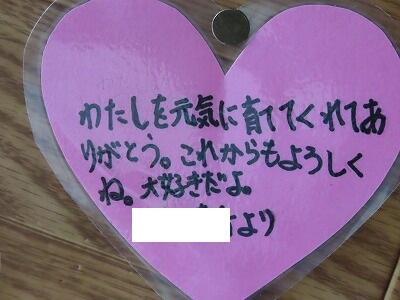 わたしを元気に育ててくれてあ
りがとう。これからもよろしく
ね。大好きだよ。
より